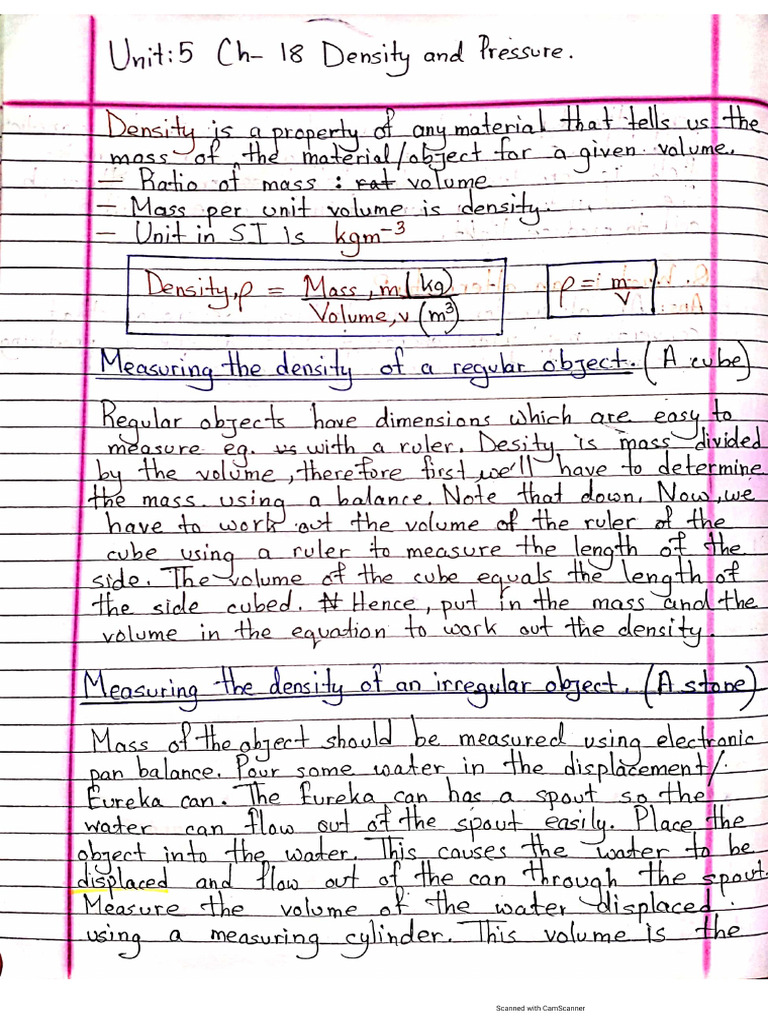 Unit:5 Ch- 18 Density and Pressure.
Density is a property of any material that tells us the
mass of the material/object for a given volume.
— Ratio of mass : rat volume
— Mass per unit volume is density.
— Unit in SI is kgm⁻³
Density, ρ = Mass, m (kg) / Volume, v (m³)
ρ = m / v
Measuring the density of a regular object. (A cube)
Regular objects have dimensions which are easy to
measure eg. us with a ruler. Desity is mass divided
by the volume, therefore first we'll have to determine
the mass using a balance. Note that down. Now, we
have to work out the volume of the ruler of the
cube using a ruler to measure the length of the
side. The volume of the cube equals the length of
the side cubed. N Hence, put in the mass and the
volume in the equation to work out the density.
Measuring the density of an irregular object. (A stone)
Mass of the object should be measured using electronic
pan balance. Pour some water in the displacement/
Eureka can. The Eureka can has a spout so the
water can flow out of the spout easily. Place the
object into the water. This causes the water to be
displaced and flow out of the can through the spout.
Measure the volume of the water displaced
using a measuring cylinder. This volume is the
Scanned with CamScanner